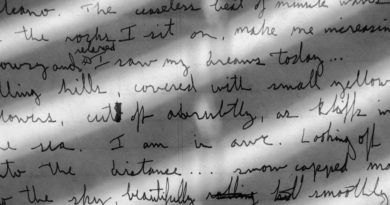 lcano. The ceaseless beat of minute waves
the rocks I sit on, make me increasin
relaxed
owsy and I saw my dreams today...
lling hills, covered with small yellow
lowers, cut off abruptly, as cliffs in
he sea. I am in awe. Looking off
nto the distance... snow capped m
o the sky, beautifully smoothly